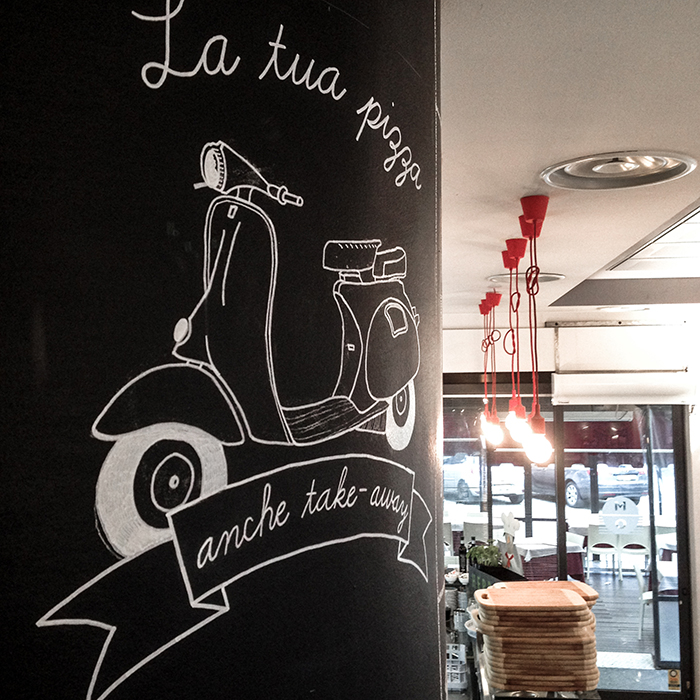 La tua pizza
anche take-away